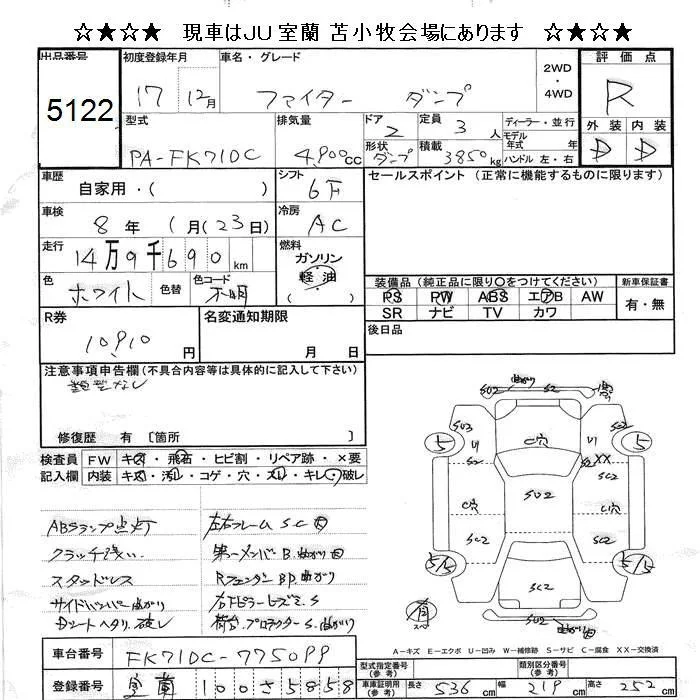 ☆★☆★ 現車はJU室蘭 苫小牧会場にあります ☆★☆★
出品番号
5122
初度登録年月
17 12月
車名・グレード
ファイター ダンプ
2WD
・
4WD
評価点
R
型式
PA-FK71DC
排気量
4,900cc
ドア
2
定員
3人
ディーラー・並行
モデル
年式 年
形状
ダンプ
積載
3850kg
ハンドル 左・右
外装 内装
D D
車歴
自家用・( )
シフト
6F
セールスポイント (正常に機能するものに限ります)
車検
8年 1月(23日)
冷房
AC
走行
14万9千690km
燃料
ガソリン
軽油
色
ホワイト
色替
色コード
不明
装備品(純正品に限り○をつけてください)
PS PW ABS エアB AW
SR ナビ TV カワ
新車保証書
有・無
R券
10,910円
名変通知期限
月 日
後日品
注意事項申告欄(不具合内容等は具体的に記入して下さい)
修復歴 有 〔箇所 〕
検査員
記入欄
FW キズ・飛石・ヒビ割・リペア跡・×要
内装 キズ・汚レ・コゲ・穴・スレ・キレ・破レ
ABSランプ点灯
クラッチ浅い
スタッドレス
サイドバンパー曲がり
Dシートヘタリ、破レ
左右フレームSC有
第一メンバB.曲がり有
RフェンダーBP曲がり
右Fピラーヒズミ.S
荷台.プロテクターS.曲がり
SU2 曲がり
SU3 U1 C穴 U1 S2
5 5
S2 XX
SC2 SC2
SU2
C穴 C穴
SC2 SC2
5/5 5/5
SC2
有
スペ
曲がり
SU2
A-キズ E-エクボ U-凹み W-補修跡 S-サビ C-腐食 XX-交換済
車台番号
FK71DC-775099
登録番号
室蘭 100さ5858
型式指定番号
(参考)
類別区分番号
(参考)
車庫証明用
(参考)
長さ 536cm 幅 219cm 高さ 252cm